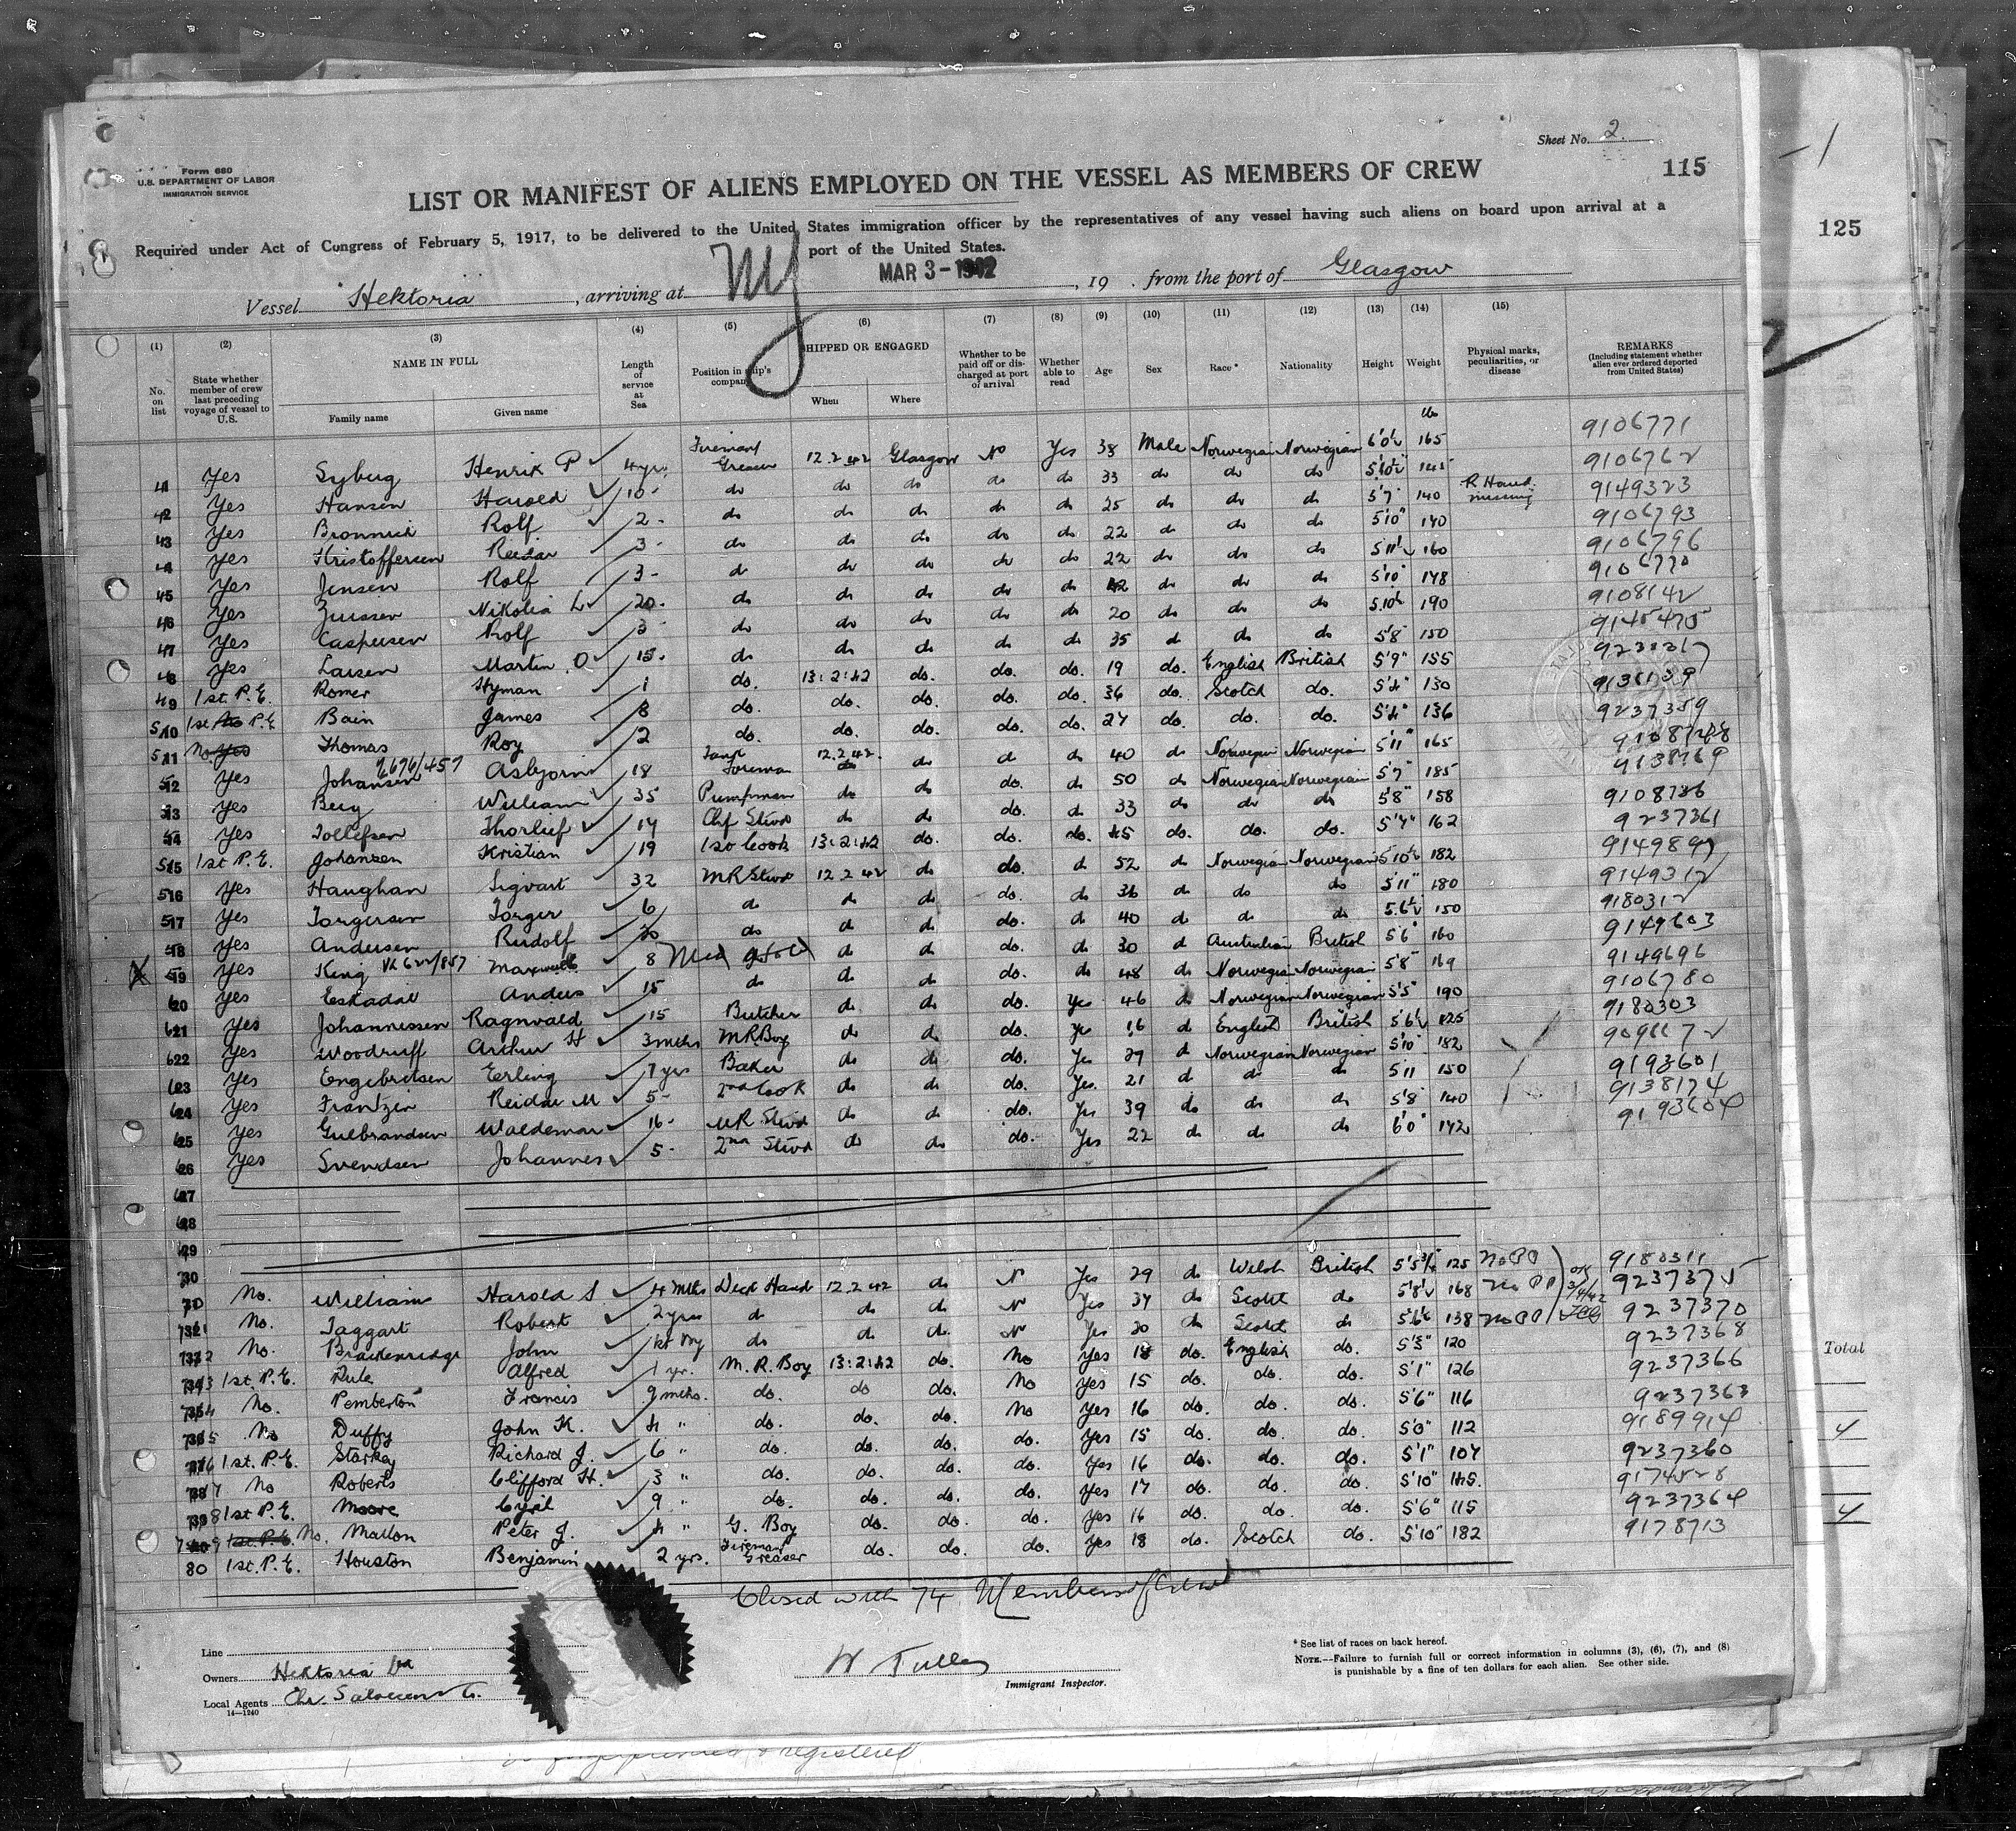 Sheet No. 2
Form 680
U.S. DEPARTMENT OF LABOR
IMMIGRATION SERVICE
115
LIST OR MANIFEST OF ALIENS EMPLOYED ON THE VESSEL AS MEMBERS OF CREW
125
Required under Act of Congress of February 5, 1917, to be delivered to the United States immigration officer by the representatives of any vessel having such aliens on board upon arrival at a
port of the United States.
Vessel Hektoria, arriving at NY MAR 3 - 1942, 19 . from the port of Glasgow
(1) (2) (3) (4) (5) (6) (7) (8) (9) (10) (11) (12) (13) (14) (15)
No. on list
State whether member of crew last preceding voyage of vessel to U.S.
NAME IN FULL
Family name
Given name
Length of service at Sea
Position in ship's company
SHIPPED OR ENGAGED
When
Where
Whether to be paid off or discharged at port of arrival
Whether able to read
Age
Sex
Race*
Nationality
Height
Weight
Physical marks, peculiarities, or disease
REMARKS
(Including statement whether alien ever ordered deported from United States)
lbs
41 Yes Syberg Henrik P 4 yrs Fireman Greaser 12.2.42 Glasgow No Yes 38 Male Norwegian Norwegian 6'0½ 165 9106771
42 Yes Hansen Harold 10 - do do do do do 33 do do do 5'10½ 145 9106762
43 Yes Rolf 2 - do do do do do 25 do do do 5'7" 140 R Hand missing 9149323
44 Yes Kristoffersen Reidar 3 - do do do do do 22 do do do 5'10" 140 9106793
45 Yes Jensen Rolf 3 - do do do do do 22 do do do 5'11½ 160 9106796
46 Yes Nikolia L 20 - do do do do do 42 do do do 5'10" 148 9106770
47 Yes Caspersen Rolf 3 do do do do do 20 do do do 5'10½ 190 9108142
48 Yes Larsen Martin O 15 - do do do do do 35 do do do 5'8" 150
49 1st P.E. Romer Hyman 1 do. 13:2:42 do. do. do. 19 do. English British 5'9" 155
50 1st P.E. Bain James 8 do. do. do. do. do. 36 do. Scotch do. 5'4" 130
51 No Yes Thomas Roy 2 do. do. do. do. do. 27 do. do. do. 5'4" 136 9237359
52 Yes Johansen Asbjorn 18 Tank Foreman 12.2.42 do do do 40 do Norwegian Norwegian 5'11" 165
53 Yes Berg William 35 Pumpman do do do. do 50 do Norwegian Norwegian 5'7" 185 9138769
54 Yes Tollefsen Thorlief 14 Chf Stwd do do do. do 33 do do do 5'8" 158 9108786
55 1st P.E. Johansen Kristian 19 1st Cook 13:2:42 do. do. do. 45 do. do. do. 5'7" 162 9237361
56 Yes Haughan Sigvart 32 MR Stwd 12.2.42 do do. do 52 do Norwegian Norwegian 5'10½ 182 9149897
57 Yes Torgersen Torger 6 do do do do. do 36 do do do 5'11" 180 9149312
58 Yes Andersen Rudolf 20 do do do do. do 40 do do do 5.6½ 150 9180312
59 Yes King Maxwell 8 do do do. do 30 do Australian British 5'6" 160 9149603
60 Yes Eskadal Anders 15 do do do do. do 48 do Norwegian Norwegian 5'8" 169 9149696
61 Yes Johannessen Ragnvald 15 Butcher do do do. Yes 46 do Norwegian Norwegian 5'5" 190 9106780
62 Yes Woodruff Arthur H 3 mths MR Boy do do do. Yes 16 do English British 5'6½ 125 9180303
63 Yes Engebretsen Erling 7 yrs Baker do do do. Yes 29 do Norwegian Norwegian 5'10" 182
64 Yes Frantzen Reidar M 5 - 2nd Cook do do do. Yes. 21 do do do 5 11 150 9193601
65 Yes Gulbrandsen Waldemar 16 - MR Stwd do do do. Yes 39 do do do 5'8" 140 9138174
66 Yes Svendsen Johannes 5 - 2nd Stwd do do do. Yes 22 do do do 6'0" 142 9193604
67
68
69
70
71 No. William Harold S 4 mths Deck Hand 12.2.42 do No Yes 29 do Welsh British 5'5¾" 125 No PP 9180311
72 No. Taggart Robert 2 yrs do do do. No Yes 34 do Scotch do 5'8½ 168 No PP OK 3/4/42 9237375
73 No. Brackenridge John 1st Voy do do do. No Yes 20 do Scotch do 5'6½ 138 No PP 9237370
1st. P.E. Rule Alfred 1 yr. M. R. Boy 13:2:42 do. No Yes 18 do. English do. 5'5" 120 9237368
No. Pemberton Francis 9 mths. do. do do. No Yes 15 do. do. do. 5'1" 126 9237366
No Duffy John K. 4 " do. do. do. No Yes 16 do. do. do. 5'6" 116 9237363
1st. P.E. Starkey Richard J. 6 " do. do. do. do. Yes 15 do. do. do. 5'0" 112 9189914
No Roberts Clifford H. 3 " do. do. do. do. Yes 16 do. do. do. 5'1" 107 9237360
1st P.E. Moore Cyril 9 " do. do. do. do. Yes 17 do. do. do. 5'10" 145.
1st P.E. No. Mallon Peter J. 4 " G. Boy do. do. do. Yes 16 do. do. do. 5'6" 115 9237364
80 1st. P.E. Houston Benjamin 2 yrs. Fireman Greaser do. do. do. Yes 18 do. Scotch do. 5'10" 182 9178713
Total
4
4
Closed with 74 Members of Crew
Line
Owners Hektoria Ltd
Local Agents Chr. Salvesen & Co.
14—1240
W Tulley
Immigrant Inspector.
* See list of races on back hereof.
NOTE.—Failure to furnish full or correct information in columns (3), (6), (7), and (8)
is punishable by a fine of ten dollars for each alien. See other side.